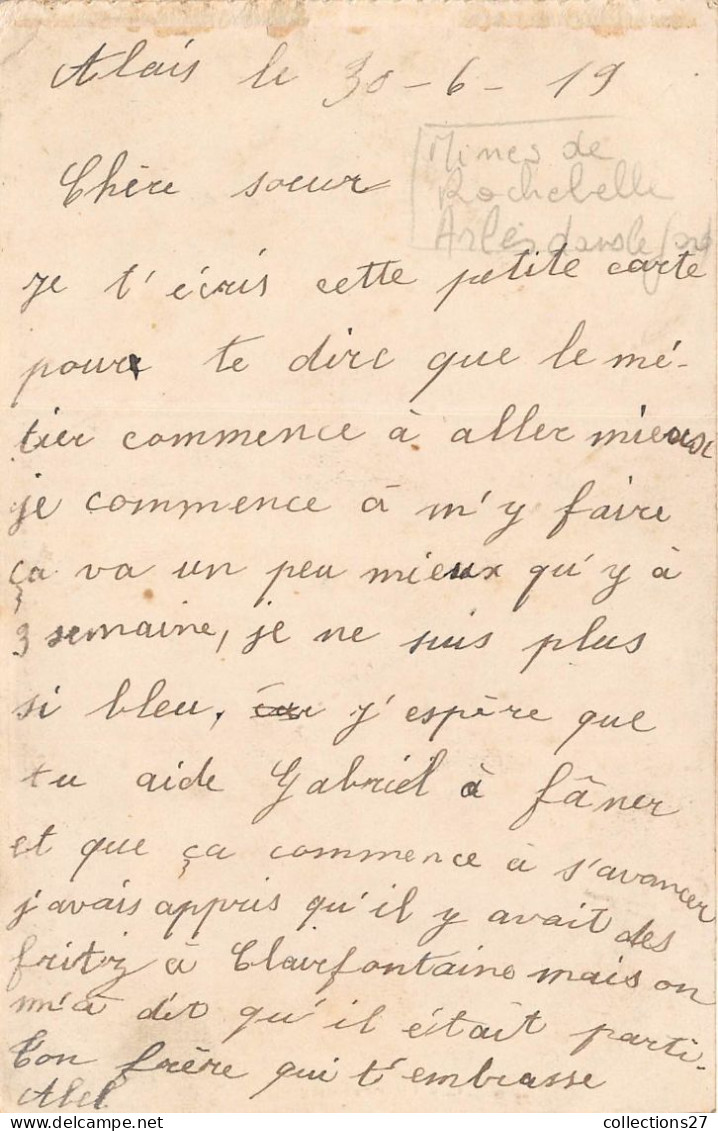 Alais le 30-6-19
Mines de
Rochebelle
Chère soeur
je t'écris cette petite carte
pour te dire que le mé-
tier commence à aller mieux
je commence à m'y faire
ça va un peu mieux qu'y à
3 semaine, je ne suis plus
si bleu, j'espère que
tu aide Gabriel à fâner
et que ça commence à s'avancer
j'avais appris qu'il y avait des
fritz à Clairfontaine mais on
m'à dit qu'il était parti.
Ton frère qui t'embrasse
Abel
collections27